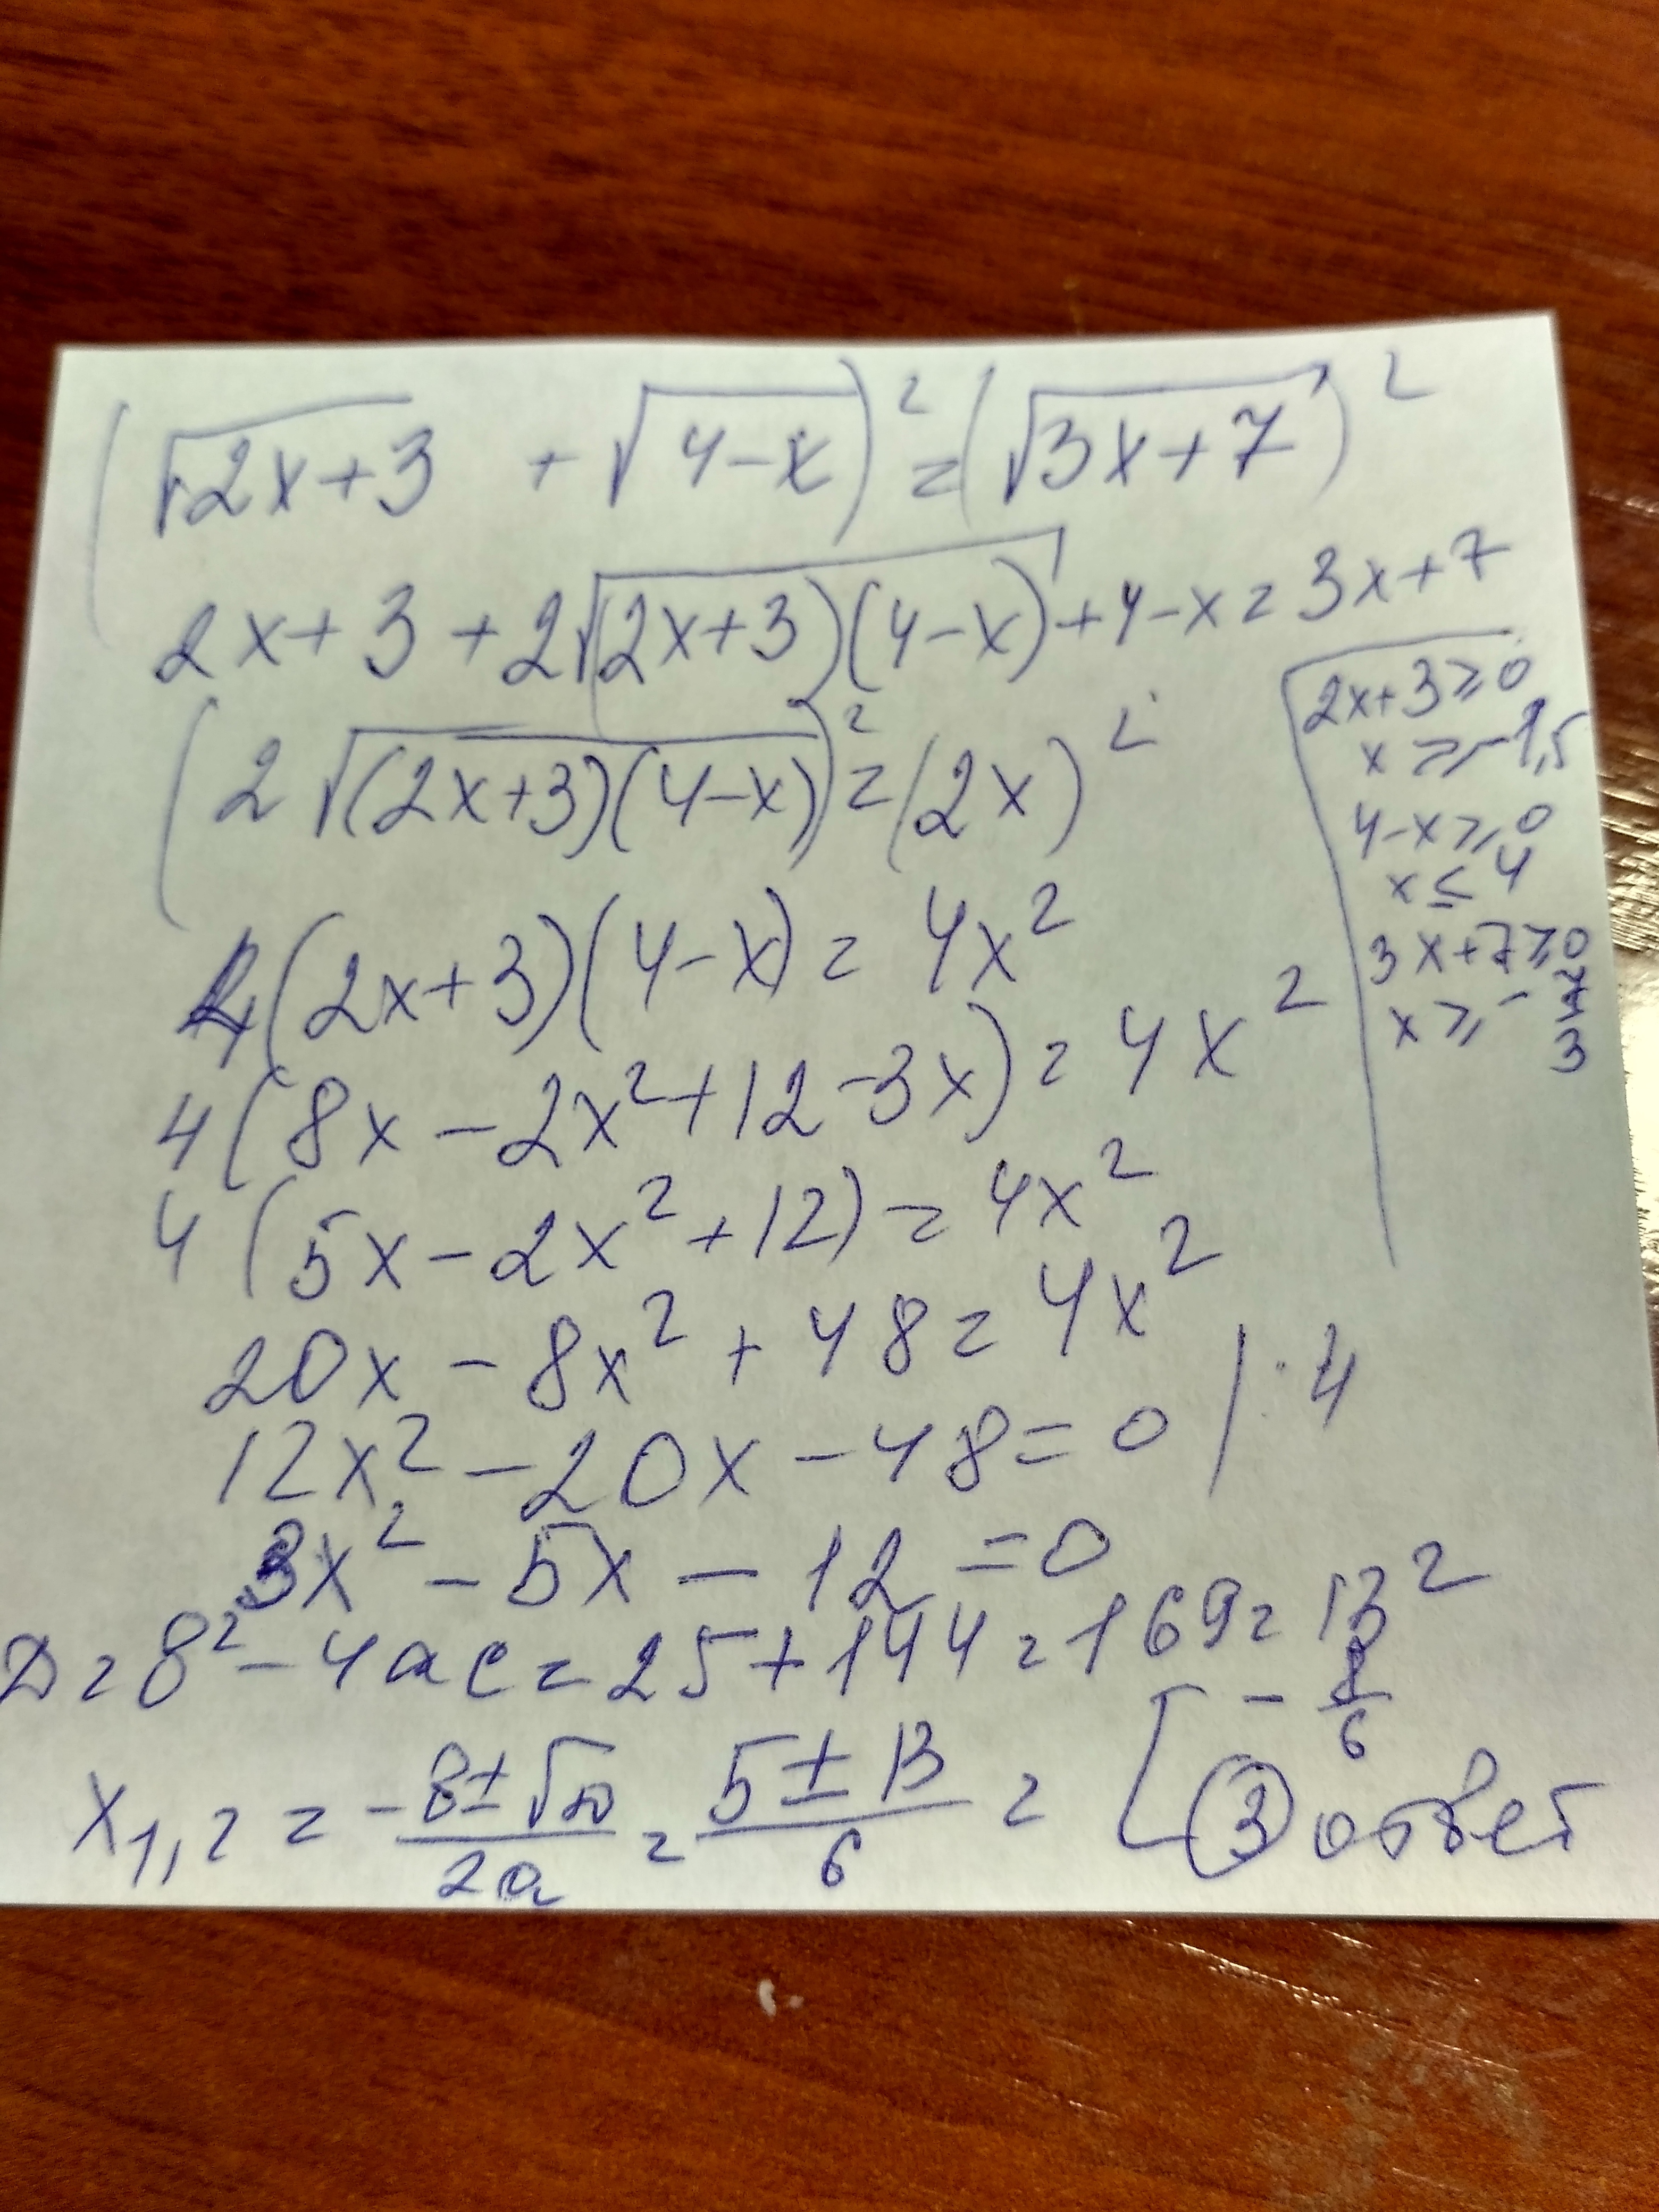 (√2x+3 + √4-x)² = (√3x+7)²
2x+3+2√(2x+3)(4-x)+4-x=3x+7
(2√(2x+3)(4-x))²=(2x)²
4(2x+3)(4-x)=4x²
4(8x-2x²+12-3x)=4x²
4(5x-2x²+12)=4x²
20x-8x²+48=4x²
12x²-20x-48=0 |:4
3x²-5x-12=0
D=в²-4ac=25+144=169=13²
x1,2=-в±√D/2a=5±13/6=[-8/6
3 ответ
2x+3≥0
x≥-1,5
4-x≥0
x≤4
3x+7≥0
x≥-7/3